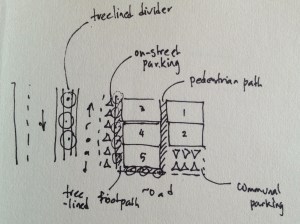 treelined
divider
on-street
parking
pedestrian path
road
3
1
4
2
5
tree
-lined
footpath
road
communal
parking